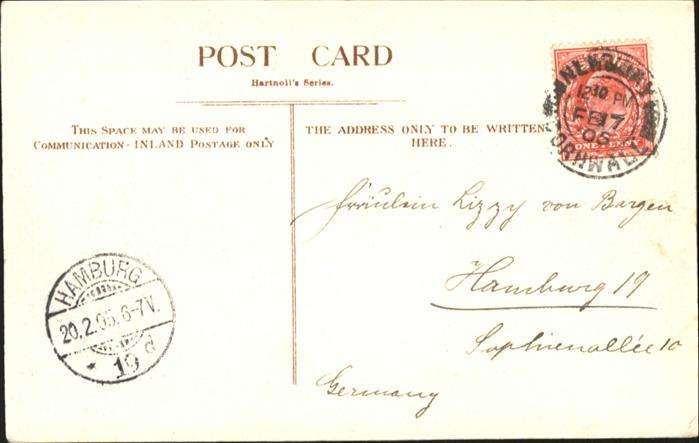 POST CARD
Hartnoll's Series.
THIS SPACE MAY BE USED FOR
COMMUNICATION - INLAND POSTAGE ONLY
THE ADDRESS ONLY TO BE WRITTEN
HERE.
NEWQUAY
12 10 PM
FE 17
05
CORNWALL
ONE PENNY
Fräulein Lizzy von Bargen
Hamburg 19
Sophienallée 10
Germany
HAMBURG
20.2.05.6-7V.
* 19 d